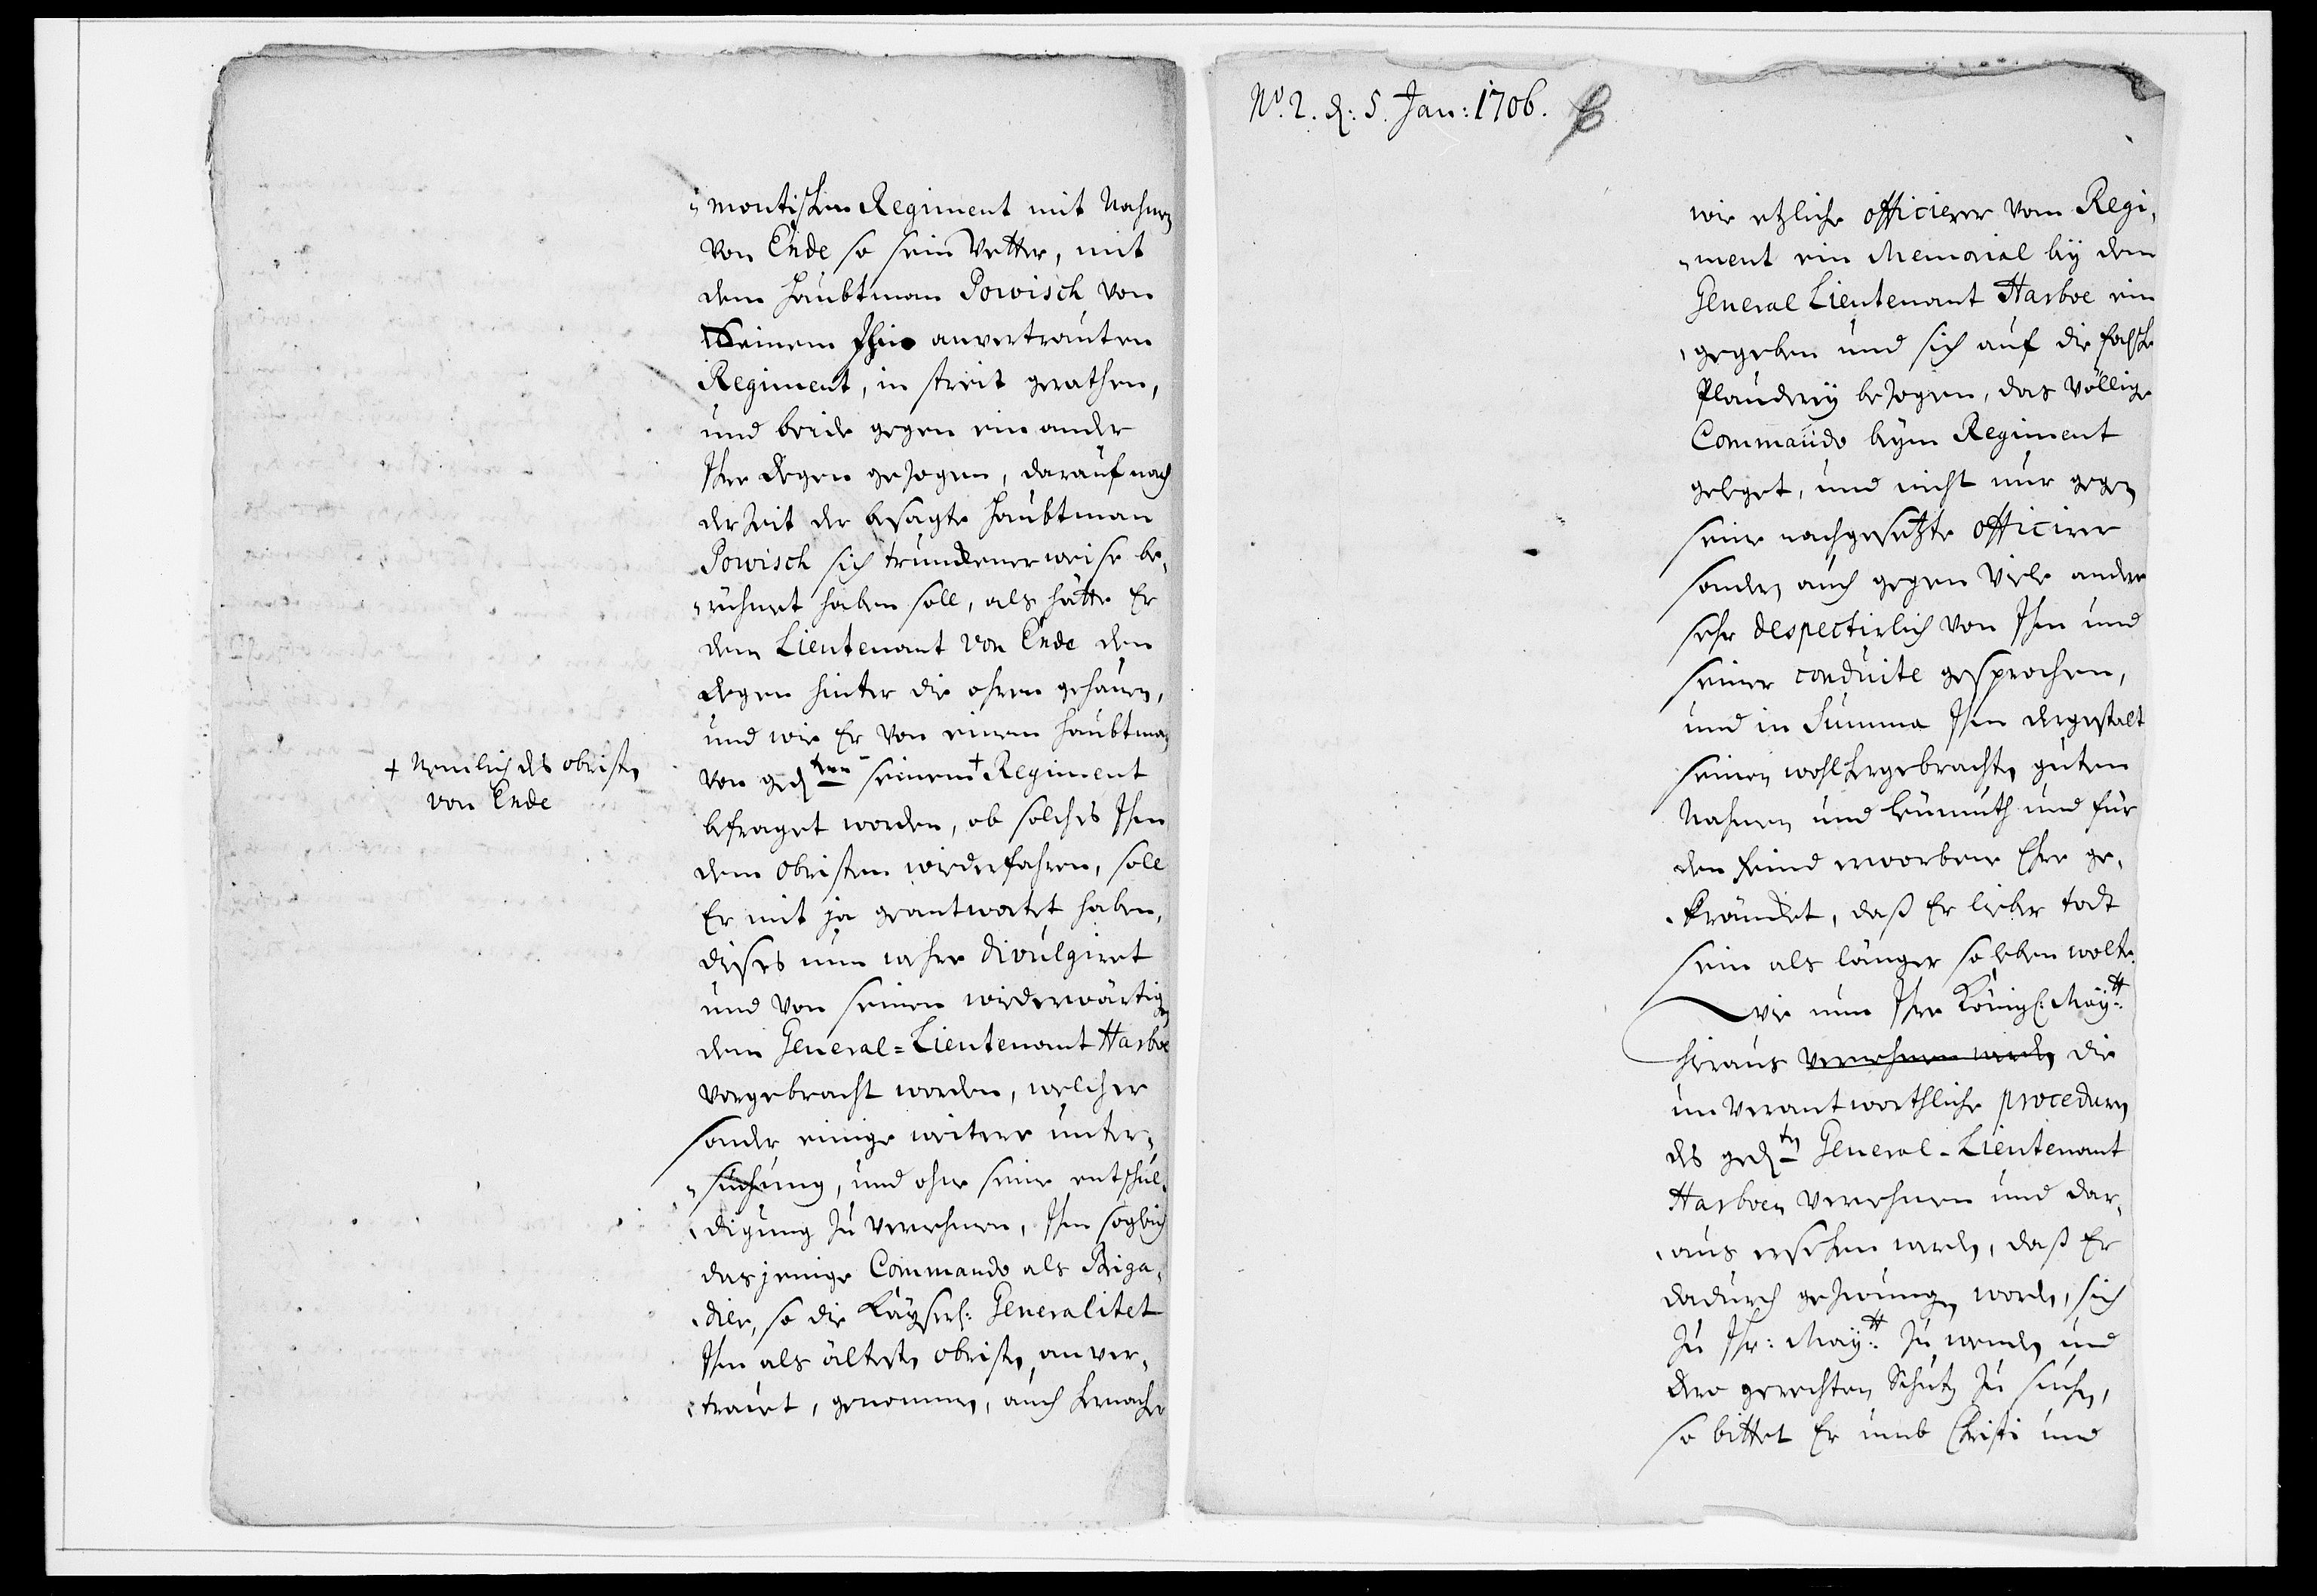 „montischen Regiment mit Nahmen
von Ende so sein Vetter, mit
dem Haubtman Powisch von
seinem Ihm anvertrauten
Regiment, in streit gerathen,
und beide gegen ein ander
Ihre degen gezogen, darauf nach
der Zeit der besagte Haubtman
Powisch sich trunckenerweise be„
„rühmet haben soll, als hätte Er
dem Lieutenant von Ende den
degen hinter die ohren gehauen,
und wie Er von einem Haubtman
von ged:ten seinem + Regiment
+ Nemlich des obristen
von Ende
befraget worden, ob solches Ihm
dem Obristen wiederfahren, soll
Er mit ja geantwortet haben,
dieses nun wehre divulgiret
und von seinen wiederwärtigen
dem General=Lieutenant Harboe
vorgebracht worden, welcher
sonder einige weitere unter„
„suchung, und ohne seine entschul„
„digung zu vernehmen, Ihm sogleich
dasjenige Commando als Briga„
„dier, so die Kayserl: Generalitet
Ihm als ältesten obristen anver„
„trauet, genommen, auch hernacher
No. 2. d: 5. Jan: 1706.
wie etzliche officierer vom Regi„
„ment ein Memorial bey dem
General Lieutenant Harboe ein
„gegeben und sich auf die falsche
Plauderey bezogen, das völlige
Commando beym Regiment
geleget, und nicht nur gegen
seine nachgesetzte officirer
sondern auch gegen viele andere
sehr despectirlich von Ihm und
seiner conduite gesprochen,
und in Summa Ihm dergestalt
seinen wohlhergebrachten guten
Nahmen und leumuth und für
den feind erworbene Ehre ge„
„kräncket, daß Er lieber todt
sein als länger so leben wolte.
Wie nun Ihre Königl: Maytt:
hieraus vernehmen werden die
unverantworthliche proceduren
des ged:ten General-Lieutenant
Harboen vernehmen und dar„
„aus ersehen werden, daß Er
dadurch gezwungen worden, sich
zu Ihr: Maytt: zu wenden und
dero gerechten Schutz zu suchen,
so bittet Er umb Christi und